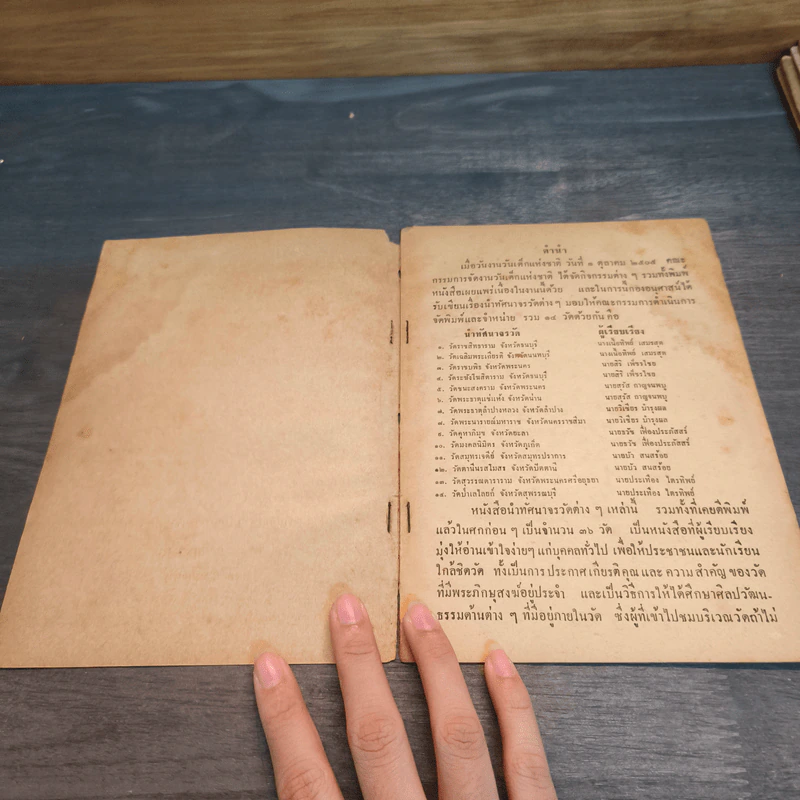 คำนำ
เมื่อวันงานวันเด็กแห่งชาติ วันที่ ๑ ตุลาคม ๒๕๐๕ คณะ
กรรมการจัดงานวันเด็กแห่งชาติ ได้จัดกิจกรรมต่าง ๆ รวมทั้งพิมพ์
หนังสือเผยแพร่เนื่องในงานนี้ด้วย และในการนี้กองอนุศาสน์ได้
รับเขียนเรื่องนำทัศนาจรวัดต่าง ๆ มอบให้คณะกรรมการดำเนินการ
จัดพิมพ์และจำหน่าย รวม ๑๔ วัดด้วยกัน คือ
นำทัศนาจรวัด ผู้เรียบเรียง
๑. วัดราชสิทธาราม จังหวัดธนบุรี นางเนื้อทิพย์ เสมรสุต
๒. วัดเฉลิมพระเกียรติ จังหวัดนนทบุรี นางเนื้อทิพย์ เสมรสุต
๓. วัดราชบพิธ จังหวัดพระนคร นายสิริ เพ็ชรไชย
๔. วัดระฆังโฆสิตาราม จังหวัดธนบุรี นายสิริ เพ็ชรไชย
๕. วัดชนะสงคราม จังหวัดพระนคร นายสุรัส กาญจนพบู
๖. วัดพระธาตุแช่แห้ง จังหวัดน่าน นายสุรัส กาญจนพบู
๗. วัดพระธาตุลำปางหลวง จังหวัดลำปาง นายวิเชียร บำรุงผล
๘. วัดพระนารายณ์มหาราช จังหวัดนครราชสีมา นายวิเชียร บำรุงผล
๙. วัดคูหาภิมุข จังหวัดยะลา นายธวัช เฟื่องประภัสสร์
๑๐. วัดมงคลนิมิตร จังหวัดภูเก็ต นายธวัช เฟื่องประภัสสร์
๑๑. วัดสมุทรเจดีย์ จังหวัดสมุทรปราการ นายบัว สนสร้อย
๑๒. วัดตานีนรสโมสร จังหวัดปัตตานี นายบัว สนสร้อย
๑๓. วัดสุวรรณดาราราม จังหวัดพระนครศรีอยุธยา นายประเทือง ไตรทิพย์
๑๔. วัดป่าเลไลยก์ จังหวัดสุพรรณบุรี นายประเทือง ไตรทิพย์
หนังสือนำทัศนาจรวัดต่าง ๆ เหล่านี้ รวมทั้งที่เคยตีพิมพ์
แล้วในศกก่อน ๆ เป็นจำนวน ๓๖ วัด เป็นหนังสือที่ผู้เรียบเรียง
มุ่งให้อ่านเข้าใจง่ายๆ แก่บุคคลทั่วไป เพื่อให้ประชาชนและนักเรียน
ใกล้ชิดวัด ทั้งเป็นการ ประกาศ เกียรติ คุณ และ ความ สำคัญ ของ วัด
ที่มีพระภิกษุสงฆ์อยู่ประจำ และเป็นวิธีการให้ได้ศึกษาศิลปวัฒน-
ธรรมด้านต่าง ๆ ที่มีอยู่ภายในวัด ซึ่งผู้ที่เข้าไปชมบริเวณวัดถ้าไม่